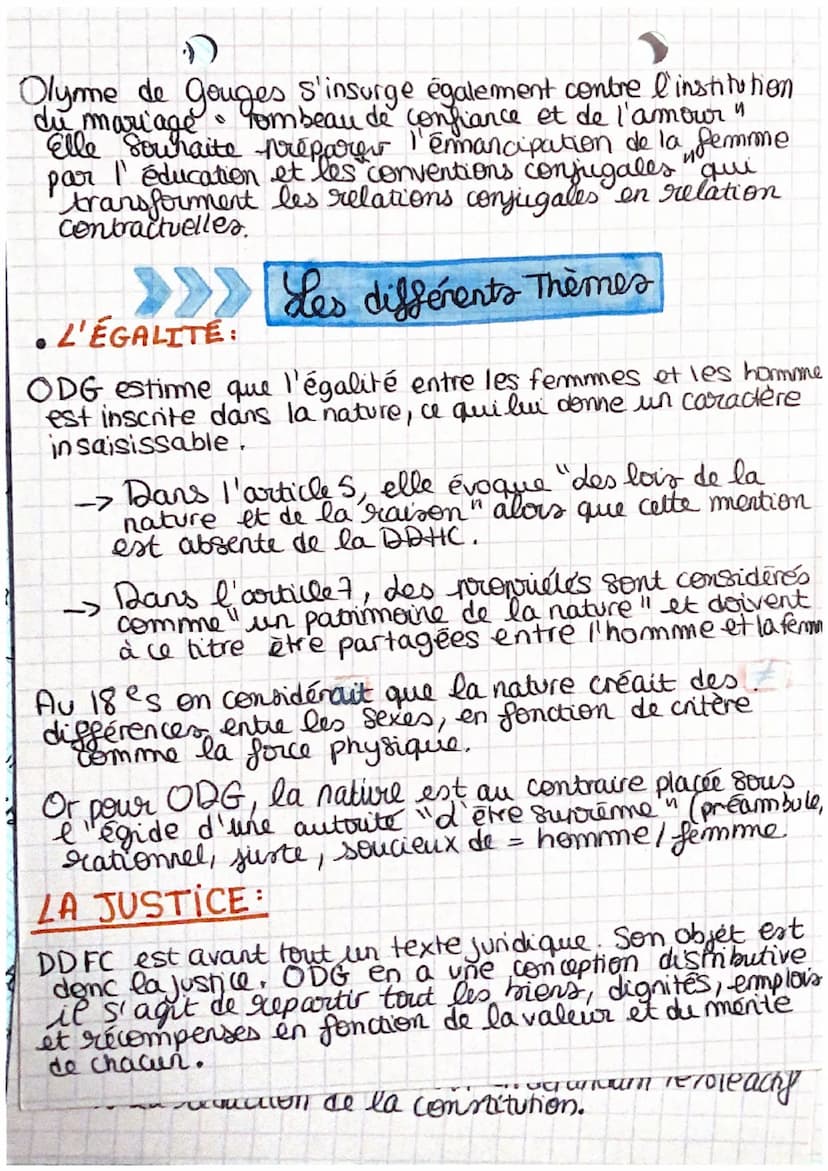 Olyme de Gouges s'insurge également contre l'institution
du mariage " Tombeau de confiance et de l'amour "
Elle souhaite préparer l'émancipation de la femme
par l'éducation et les "conventions conjugales" qui
transforment les relations conjugales en relation
contractuelles.
Les différents Thèmes
• L'ÉGALITÉ :
ODG estime que l'égalité entre les femmes et les homme
est inscrite dans la nature, ce qui lui donne un caractère
insaisissable.
-> Dans l'article 5, elle évoque "des lois de la
nature et de la raison" alors que cette mention
est absente de la DDHC.
-> Dans l'article 7, des propriétés sont considérés
comme "un patrimoine de la nature" et doivent
à ce titre être partagées entre l'homme et la femm
Au 18e s on considérait que la nature créait des ≠
différences entre les sexes, en fonction de critère
comme la force physique.
Or pour ODG, la nature est au contraire placée sous
l'égide d'une autorité "d'être suprême" (préambule,
rationnel, juste, soucieux de = homme / femme.
LA JUSTICE :
DDFC est avant tout un texte juridique. Son objet est
donc la justice. ODG en a une conception distributive
il s'agit de repartir tout les biens, dignités, emplois
et récompenses en fonction de la valeur et du mérite
de chacun.
le role actif
de la constitution.